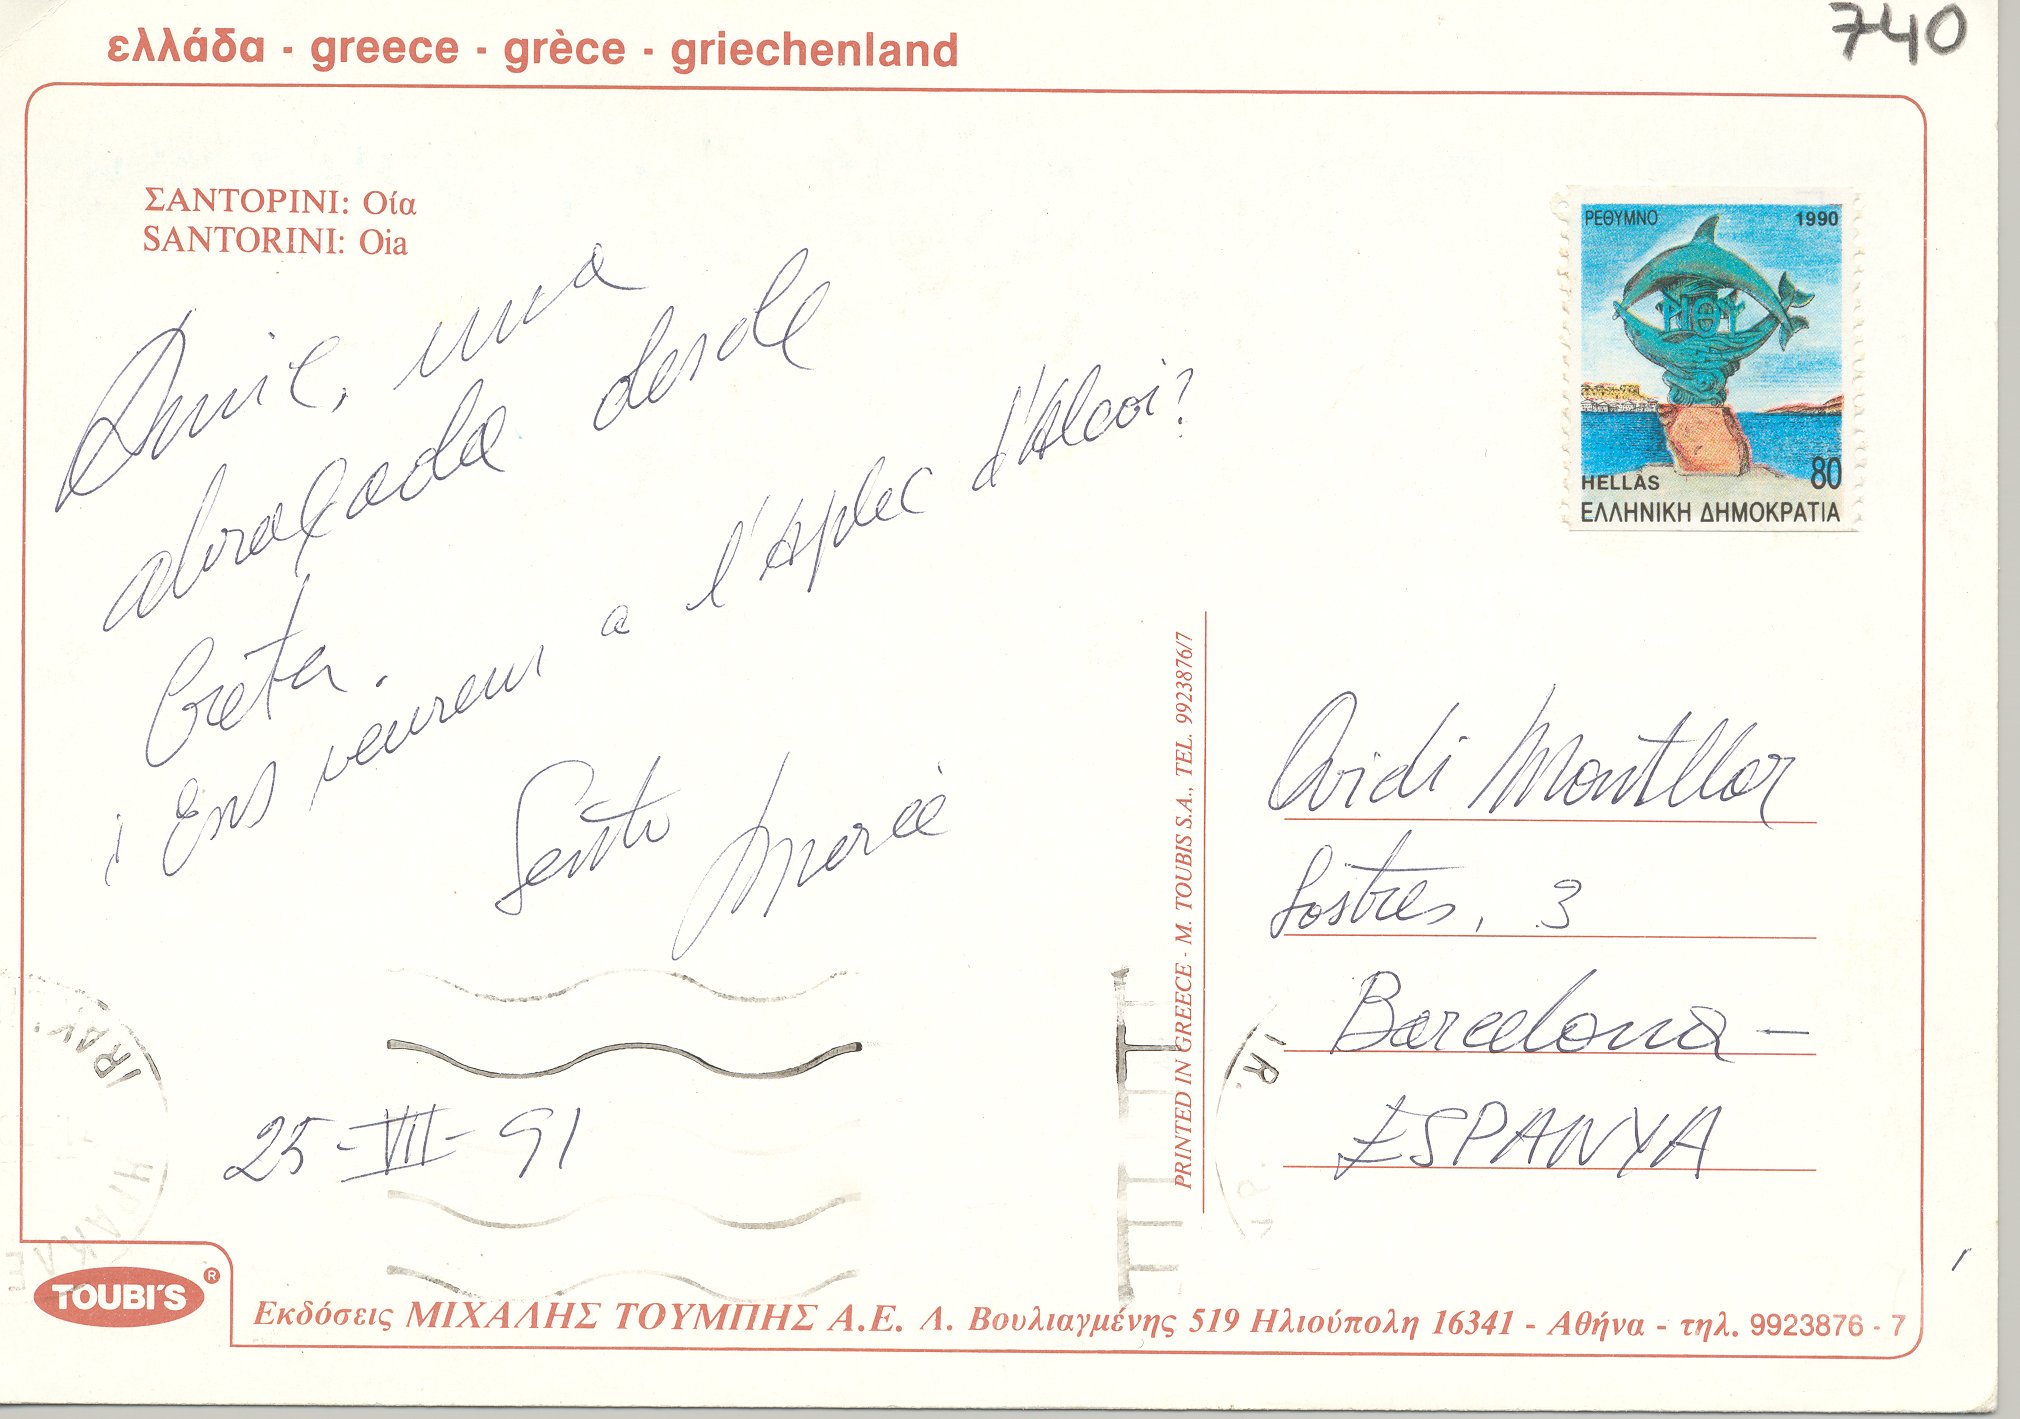 740
ελλάδα - greece - grèce - griechenland
ΣΑΝΤΟΡΙΝΙ: Οία
SANTORINI: Oia
Amic, una
abraçada desde
Creta.
i Ens veurem a l'Aplec d'Alcoi?
Sento
Mercè
25-VII-91
ΡΕΘΥΜΝΟ 1990
ΡΕΘΥ
80
HELLAS
ΕΛΛΗΝΙΚΗ ΔΗΜΟΚΡΑΤΙΑ
PRINTED IN GREECE - M. TOUBIS S.A., TEL. 9923876/7
Ovidi Montllor
Sostres, 3
Barcelona -
ESPANYA
TOUBI'S ®
Εκδόσεις ΜΙΧΑΛΗΣ ΤΟΥΜΠΗΣ Α.Ε. Λ. Βουλιαγμένης 519 Ηλιούπολη 16341 - Αθήνα - τηλ. 9923876 - 7